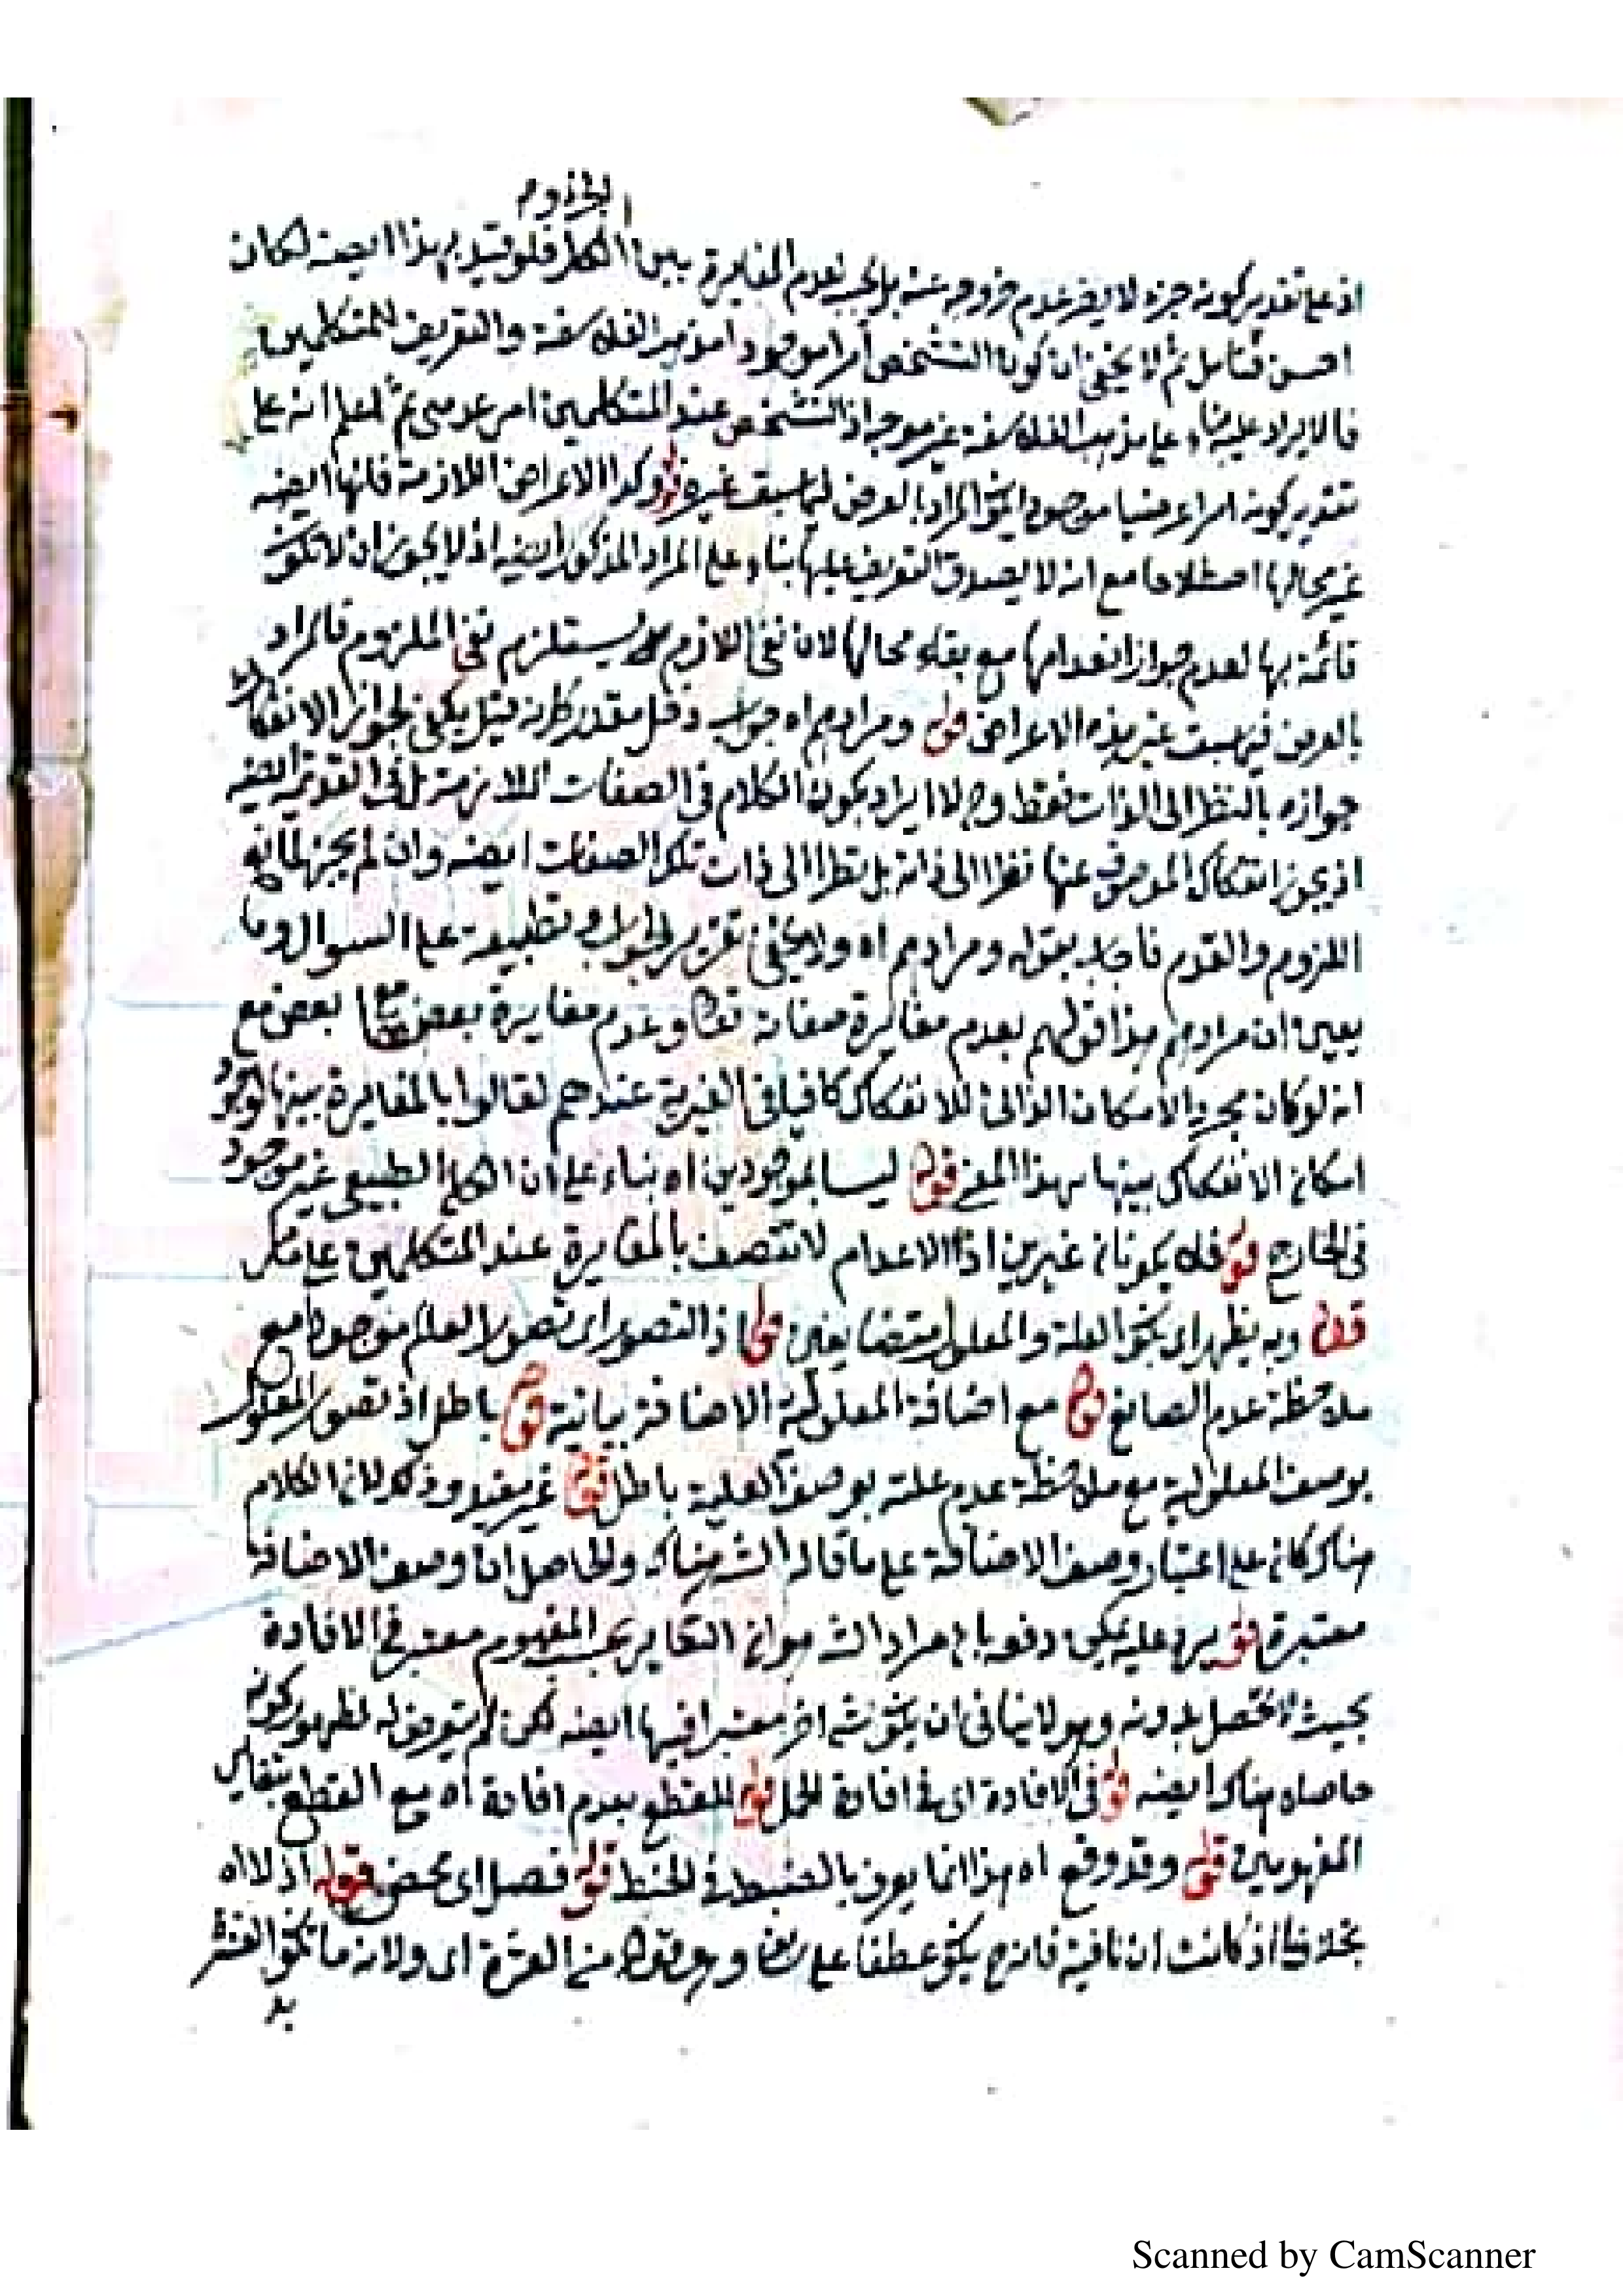 الجزء وم
اذ على تقدير كونه جزء لا يضر عدم خروجه عنه بل يجب لعدم المغايرة بين الكل فلو قيد بهذا ايضه لكان
احسن فتأمل ثم لا يخفى ان كون التشخص أمرا موجودا مذهب الفلاسفة والتعريف للمتكلمين
فالايراد عليه بناء على مذهب الفلاسفة غير موجه اذ التشخص عند المتكلمين امر عدمي ثم اعلم انه على
تقدير كونه امرا عرضيا موجودا المراد بالعرض فيما سبق غيره قوله وكذا الاعراض اللازمة فانها ايضه
غير محالها اصطلاحا مع انه لا يصدق التعريف عليها بناء على المراد المذكور ايضه اذ لا يجوز ان لا تكون
قائمة بها لعدم جواز انعدامها مع بقاء محالها لان نفى اللازم يستلزم نفى الملزوم فالمراد
بالعرض فيما سبق غير هذه الاعراض قوله ومرادهم اه جواب دخل مقدر كانه قيل يكفى لجواز الانفكاك
جوازه بالنظر الى الذات فقط وح لا ايراد بكون الكلام فى الصفات اللازمة بل فى القديمة ايضه
اذ يجوز انفكاك الموصوف عنها نظرا الى ذاته بل نظرا الى ذات تلك الصفات ايضه وان لم يجز لمانع
اللزوم والقدم فاجاب بقوله ومرادهم اه ولا يخفى تقرير الجواب وتطبيقه على السوال وما
يعين ان مرادهم هذا قولهم بعدم مغايرة صفاته تعا وعدم مغايرة بعض بعض مع
انه لو كان مجرد الامكان الذاتى للانفكاك كافيا فى الغيرية عندهم لقالوا بالمغايرة بينها لوجود
امكان الانفكاك بينها بهذا المعنى قوله ليسا بموجودين اه بناء على ان الكلى الطبيعى غير موجود
فى الخارج قوله فلا يكونان غيرين اذ الاعدام لا تتصف بالمغايرة عند المتكلمين على ما مر
قوله وبه يظهر اى بكون العلة والمعلول متضايفين قوله اذ التصور اى تصور العلم موجودا مع
ملاحظة عدم الصانع قوله مع اضافة المعلولية الاضافة بيانية قوله باطل اذ تصور المعلول
بوصف المعلولية مع ملاحظة عدم علته بوصف العلية باطل قوله غير مفيد وذلك لان الكلام
هناك كان على اعتبار وصف الاضافة على ما قاله الش هناك والحاصل ان وصف الاضافة
معتبرة قوله يرد عليه يمكن دفعه بان مراد الش هو ان التغاير بحسب المفهوم معتبر فى الافادة
بحيث لا تحصل بدونه وهو لا ينافى ان يكون شئ اخر معتبرا فيها ايضه لكن لم يتعرض له لظهوره كونه
حاصلا هناك ايضه قوله فى الافادة اى فى افادة الحمل قوله للقطع بعدم افادة اه مع القطع بتغاير
المفهومين قوله وقد وقع اه هذا انما يعرف بالضبط فى الخط قوله فصل اى محض قوله اذ لا اه
بخلاف اذ كانت ان نافية فانه ح يكون عطفا على وهو قوله من العشرة اى ولانه ما تكون العشرة
بد
Scanned by CamScanner